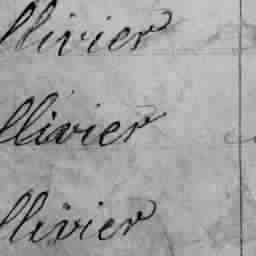 llivier
llivier
llivier